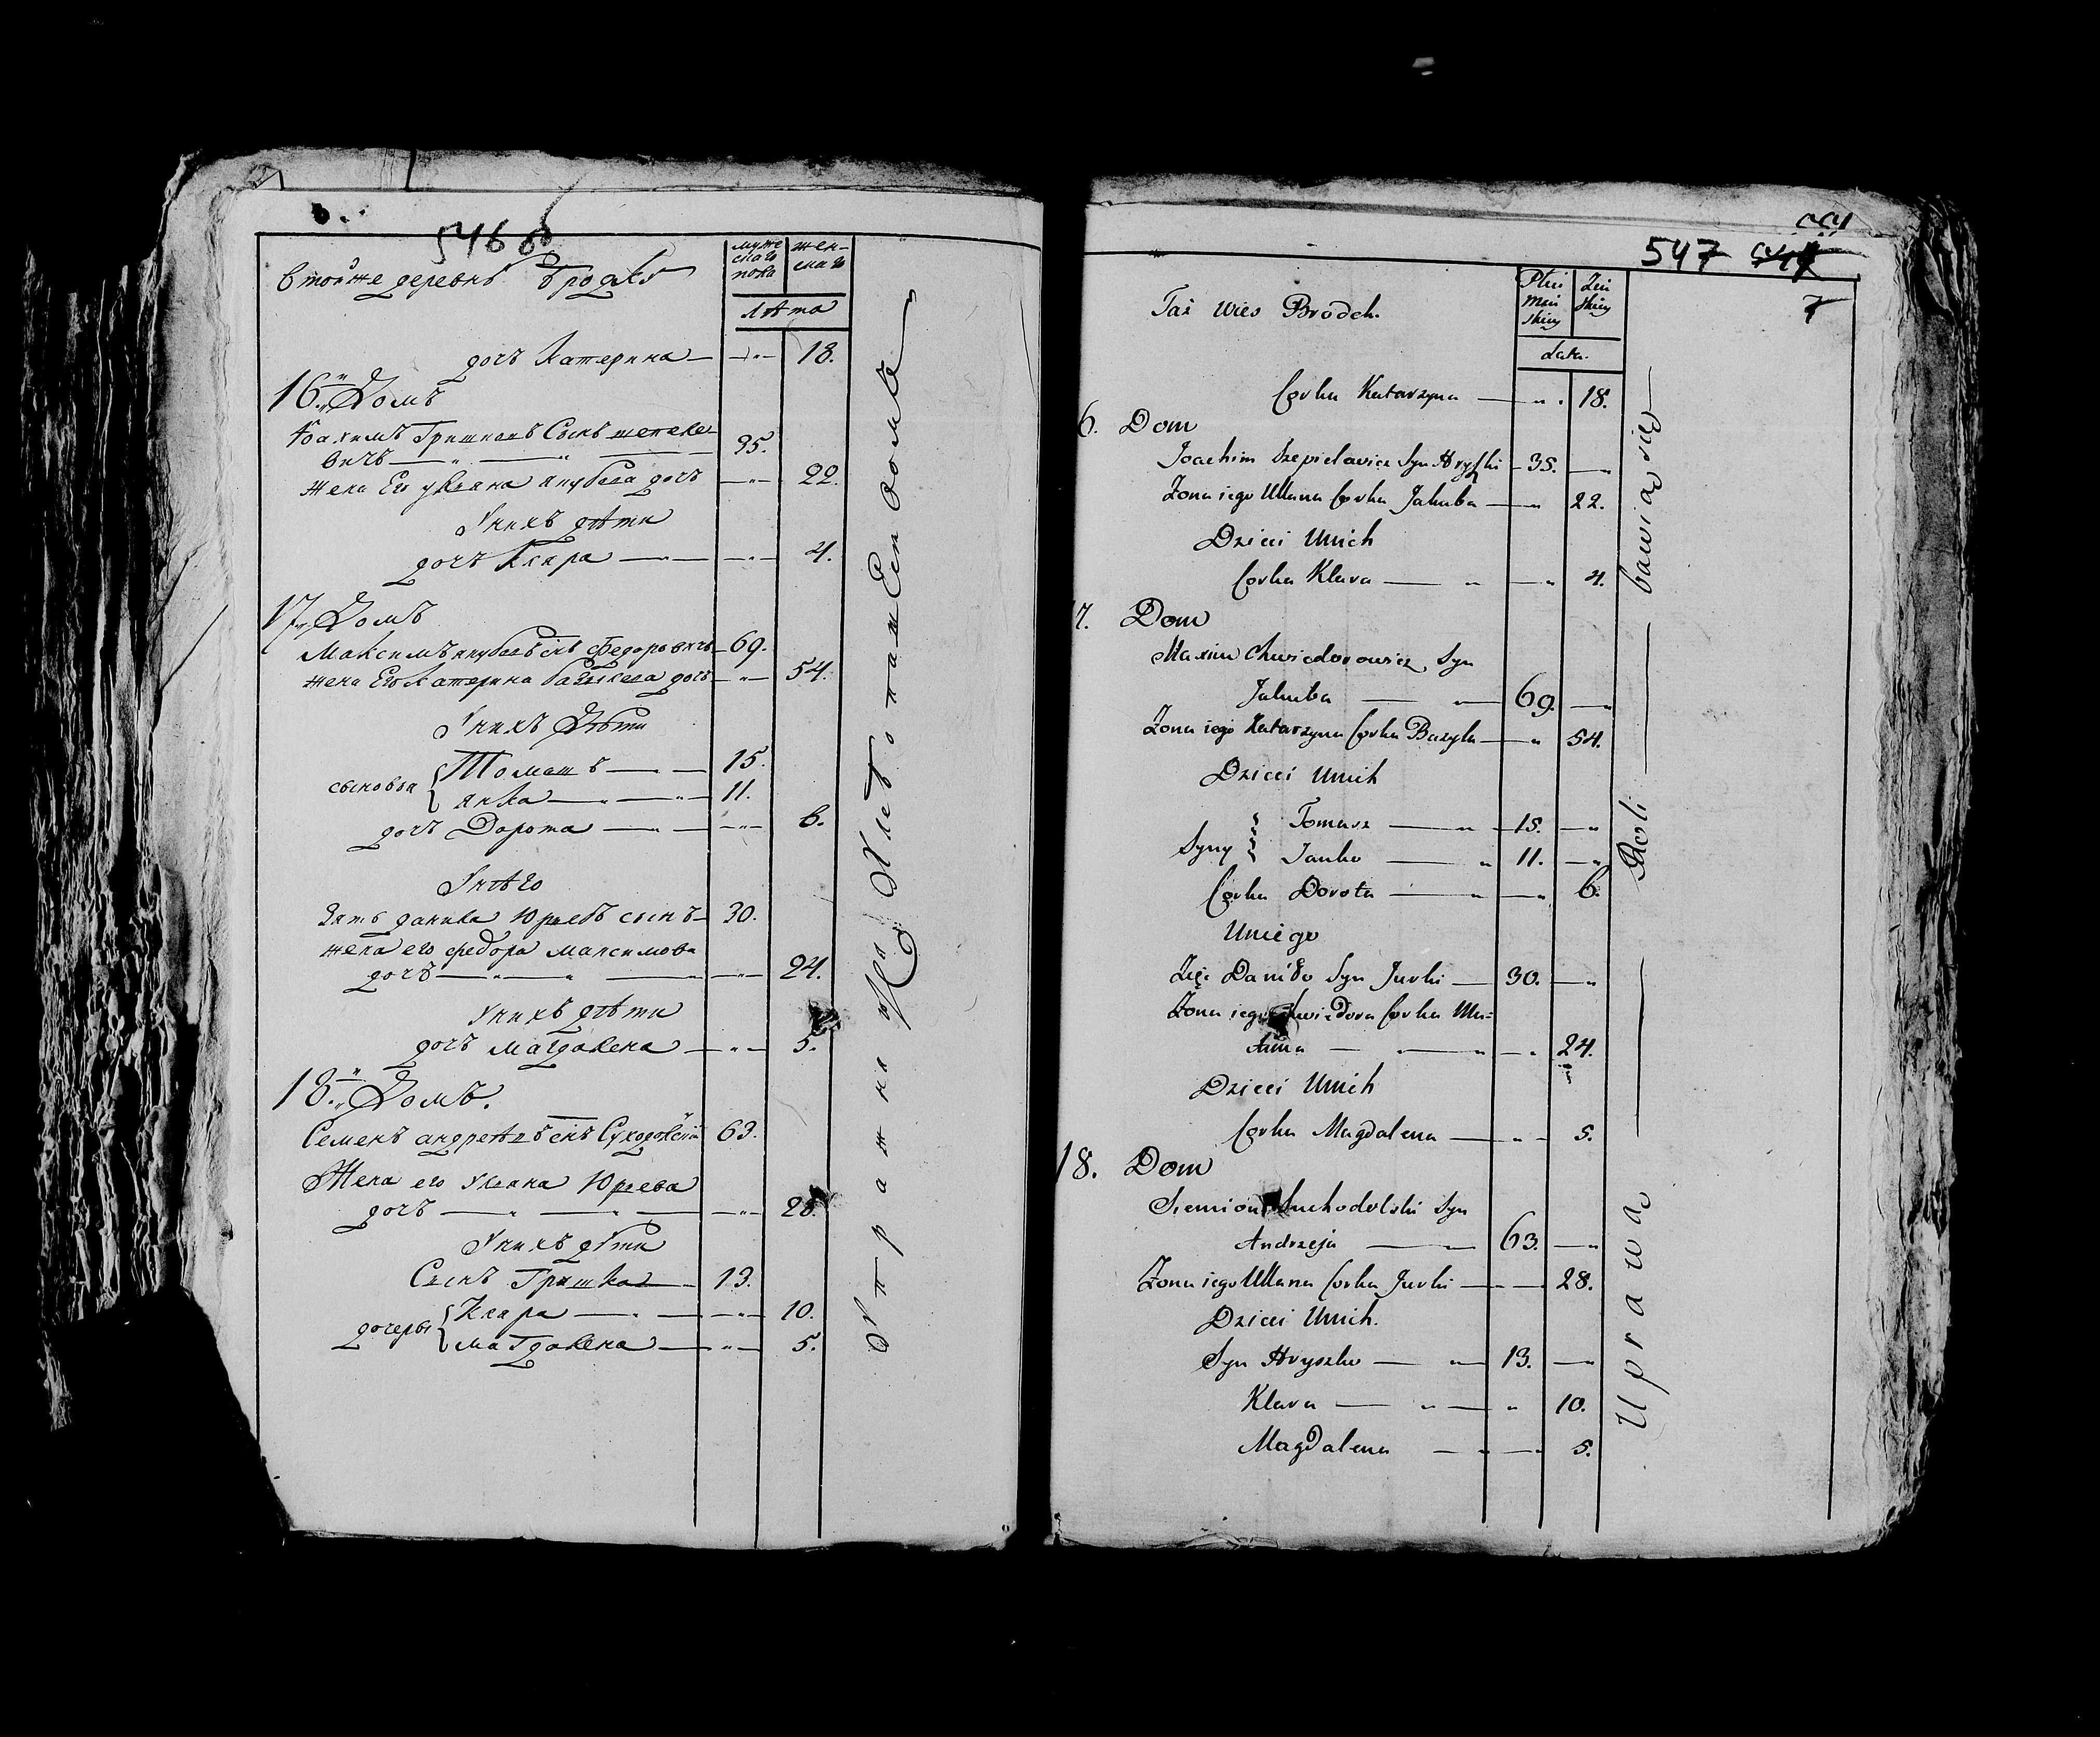 546 об
В тойже деревнѣ Бродкѣ
муже
скаго
пола
жен-
скаго
лѣта
дочъ Катерина — 18.
16. Домъ
Іоахимъ Гришковъ Сынъ шепеле-
вичъ — 35.
жена Его ульяна якубова дочъ — 22.
У нихъ дѣти
дочъ Клара — 4.
17. Домъ
Максимъ якубовъ снъ Федоровичъ 69.
жена Его Катерина базылева дочъ — 54.
У нихъ Дѣти
сыновья { Томашъ — 15.
янка — 11.
дочъ Дорота — 6.
У него
Зять данила Юрьевъ сынъ 30.
жена его федора максимова
дочъ — 24.
У нихъ дѣти
дочъ магдалена — 5.
18. Домъ.
Семенъ андреевъ снъ Суходольскій 63.
Жена его Ульяна Юрьева
дочъ — 28.
У нихъ дѣти
Сынъ Гришка — 13.
дочеры { Клара — 10.
магдалена — 5.
547
7
Taż wieś Brodek.
Płci
Męs
skiey
Żeń
skiey
Lata.
Corka Katarzyna — 18.
6. Dom
Joachim Szepielewicz Syn Hryszki — 35.
Zona iego Ullana Corka Jakuba — 22.
Dzieci Unich
Corka Klara — 4.
7. Dom
Maxim Chwiedorowicz Syn
Jakuba — 69.
Zona iego Katarzyna Corka Bazyla — 54.
Dzieci Unich
Syny { Tomasz — 15.
Janko — 11.
Corka Dorota — 6.
Uniego
Zięć Daniło Syn Jurki — 30.
Zona iego Chwiedora Corka Ma=
xima — 24.
Dzieci Unich
Corka Magdalena — 5.
18. Dom
Siemion Suchodolski Syn
Andrzeja — 63.
Zona iego Ullana Corka Jurki — 28.
Dzieci Unich.
Syn Hryszko — 13.
Klara — 10.
Magdalena — 5.
Uprawą — Roli — bawią się